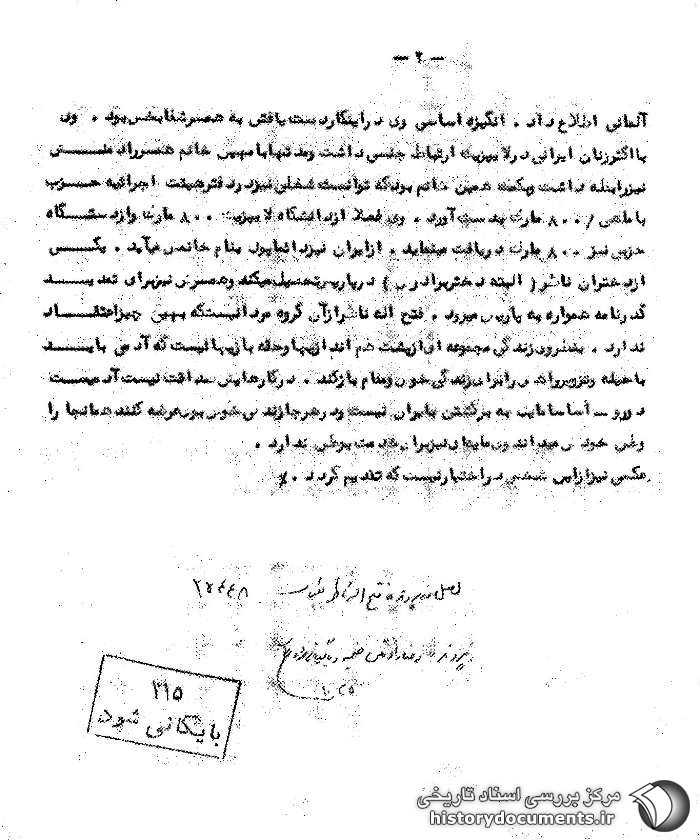 — ۲ —
آلمانی اطلاع داد . انگیزه اساسی وی در اینکار دست یافتن به همسرشنابخش بود . وی
با اکثر زنان ایرانی در لایپزیک ارتباط جنسی داشت ومدتها با مهین خانم همسرراد منش
نیز رابطه داشت وبکمک همین خانم بود که توانست شغلی نیز در دفتر هیئت اجرائیه حزب
با ماهی /۸۰۰ مارک بدست آورد . وی فعلا از دانشگاه لایپزیک ۸۰۰ مارک واز دستگاه
حزبی نیز ۸۰۰ مارک دریافت مینماید . از ایران نیز دائما پول بنام خانمش میآید . یکی از
از دختران ناظر ( البته دختر برادرش ) در پاریس تحصیل میکند وهمسرش نیز برای تمدید
گذرنامه همواره به پاریس میرود . فتح اله ناظر از آن گروه مردانیست که بهیچ چیز اعتقاد
ندارد . بنظر وی زندگی مجموعه ای از پشت هم اندازیها وحقه بازیها نیست که آدمی باید
با حیله وتزویر راهش را برای زندگی خوش ومقام باز کند . در کارهایش صداقت نیست آدمیست
دورو ـ اساسا مایل به برگشتن بایران نیست ودر هر جا زندگی خوش بوی عرضه کنند همانجا را
وطن خود میداند وی مایه ای نیز برای خدمت بوطن ندارد .
عکسی نیز از این شخص در اختیار نیست که تقدیم گردد .
اصل در پرونده فتح اله ناظر
۳۱۵
بایگانی شود
مرکز بررسی اسناد تاریخی
historydocuments.ir